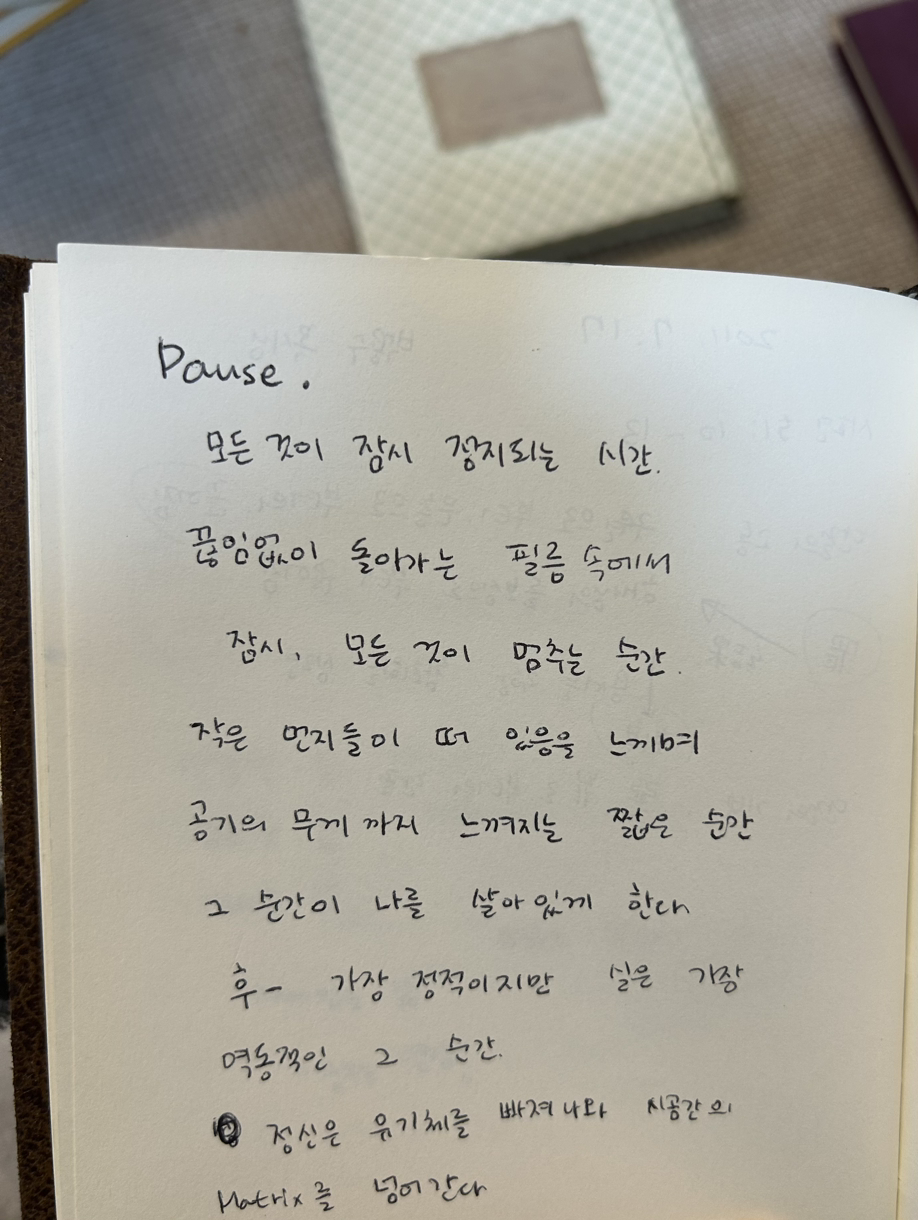 Pause.
모든 것이 잠시 정지되는 시간.
끊임없이 돌아가는 필름 속에서
잠시, 모든 것이 멈추는 순간.
작은 먼지들이 떠 있음을 느끼며
공기의 무게까지 느껴지는 짧은 순간
그 순간이 나를 살아있게 한다
후- 가장 정적이지만 실은 가장
역동적인 그 순간.
정신은 유기체를 빠져나와 시공간의
Matrix를 넘어간다